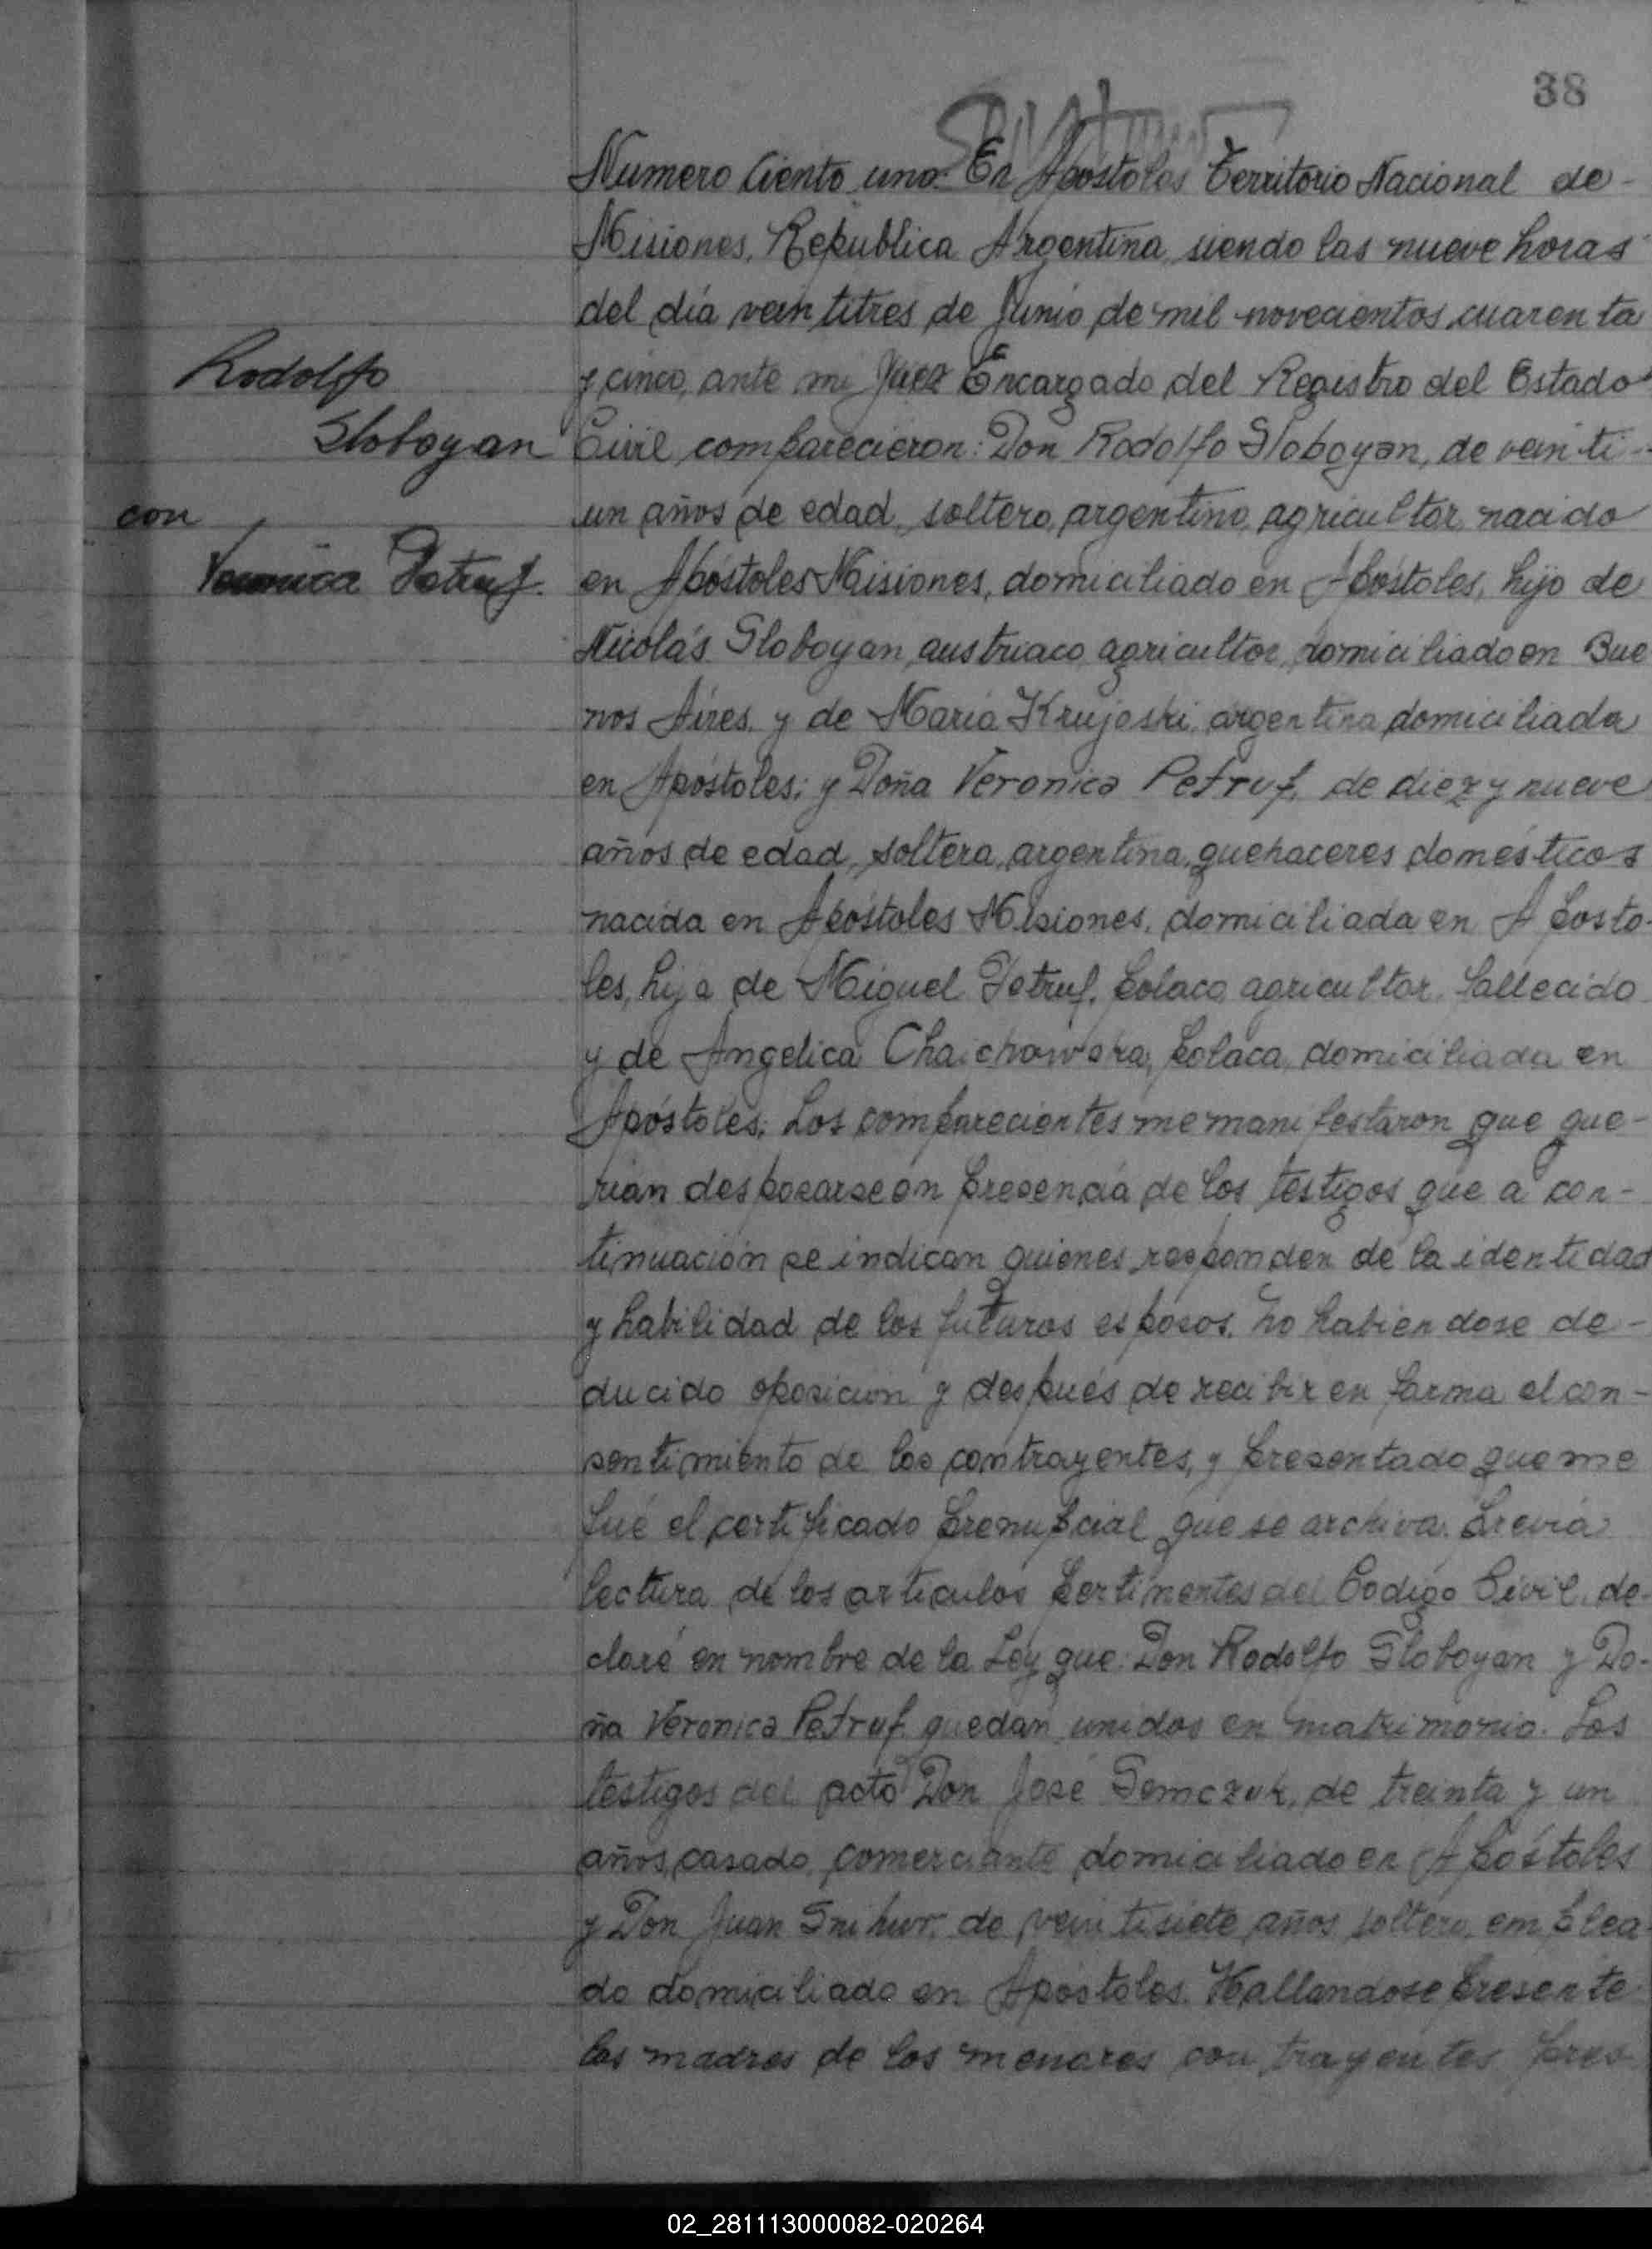 38
Numero Ciento uno. En Apóstoles Territorio Nacional de
Misiones, Republica Argentina, siendo las nueve horas
del día veintitres de Junio de mil novecientos cuarenta
Rodolfo
y cinco, ante mi Juez Encargado del Registro del Estado
Sloboyan
Civil, comparecieron: Don Rodolfo Sloboyan, de veinti-
con
un años de edad, soltero, argentino, agricultor, nacido
Veronica Petruf.
en Apóstoles Misiones, domiciliado en Apóstoles, hijo de
Nicolás Sloboyan, austriaco, agricultor, domiciliado en Bue
nos Aires, y de María Krujoski, argentina domiciliada
en Apóstoles; y Doña Veronica Petruf, de diez y nueve
años de edad, soltera, argentina, quehaceres domésticos
nacida en Apóstoles Misiones, domiciliada en Aposto-
les, hija de Miguel Petruf, polaco, agricultor, fallecido
y de Angelica Chaichowska, polaca, domiciliada en
Apóstoles; Los comparecientes me manifestaron que que-
rian desposarse en presencia de los testigos que a con-
tinuación se indican quienes responden de la identidad
y habilidad de los futuros esposos. no habiendose de-
ducido oposición y después de recibir en forma el con-
sentimiento de los contrayentes, y presentado que me
fué el certificado prenupcial que se archiva. Previa
lectura de los artículos pertinentes del Codigo Civil, de-
claré en nombre de la Ley que: Don Rodolfo Sloboyan y Do-
ña Veronica Petruf. quedan unidos en matrimonio. Los
testigos del acto Don José Semczuk, de treinta y un
años, casado, comerciante domiciliado en Apóstoles
y Don Juan Snihur, de veintisiete años, soltero, emplea
do domiciliado en Apóstoles. Hallandose presente
las madres de los menores contrayentes pres
02_281113000082-020264